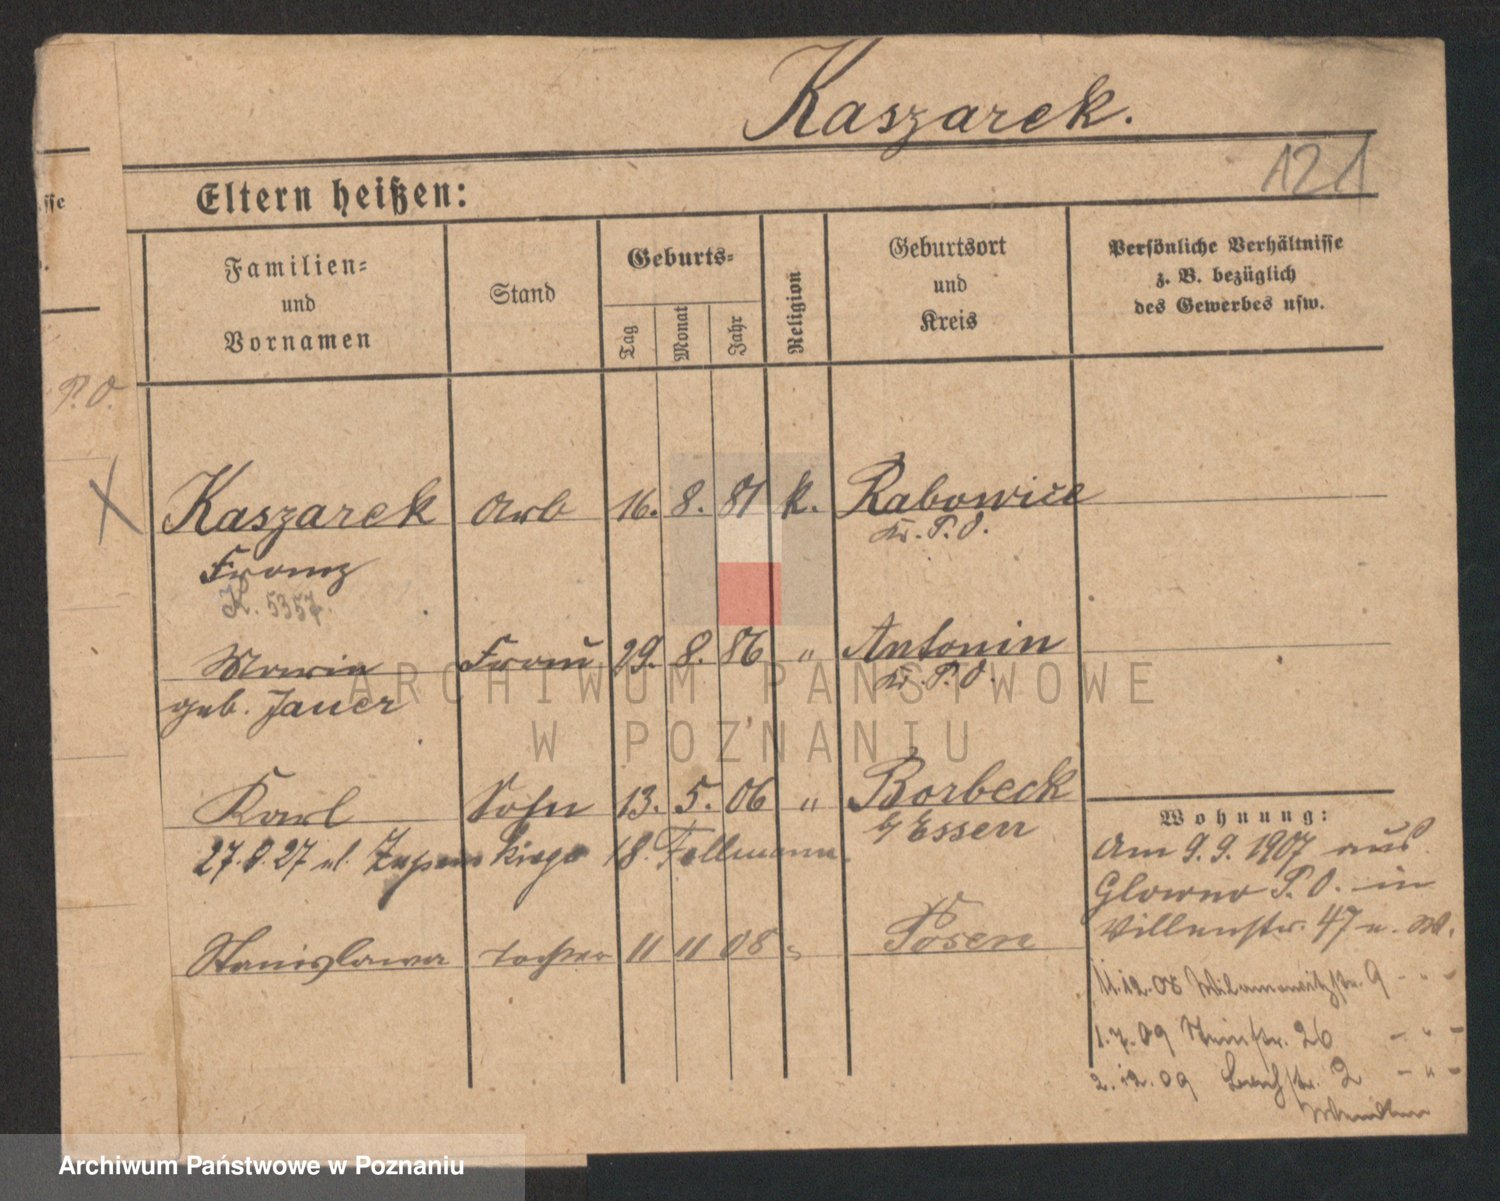 Kaszarek.
121
Eltern heißen:
Familien-
und
Vornamen
Stand
Geburts-
Tag
Monat
Jahr
Religion
Geburtsort
und
Kreis
Persönliche Verhältnisse
z. B. bezüglich
des Gewerbes usw.
P.O.
Kaszarek Arb 16. 8. 81 k. Rabowice
Franz Kr. P.O.
K. 5357.
Maria Frau 29. 8. 86 " Antonin
geb. Jauer Kr. P.O.
Karl Sohn 13. 5. 06 " Borbeck
27. 27 18. b/ Essen
Stanislawa Tochter 11 11 08 " Posen
Wohnung:
Am 9.9.1907 aus
Glowno P.O. in
Villenstr. 47 u. W.
11.12.08 Wilamowitzstr. 9 - " -
1.7.09 Steinstr. 26 - " -
2.12.09 Bachstr. 2 - " -
ARCHIWUM PAŃSTWOWE
W POZNANIU
Archiwum Państwowe w Poznaniu